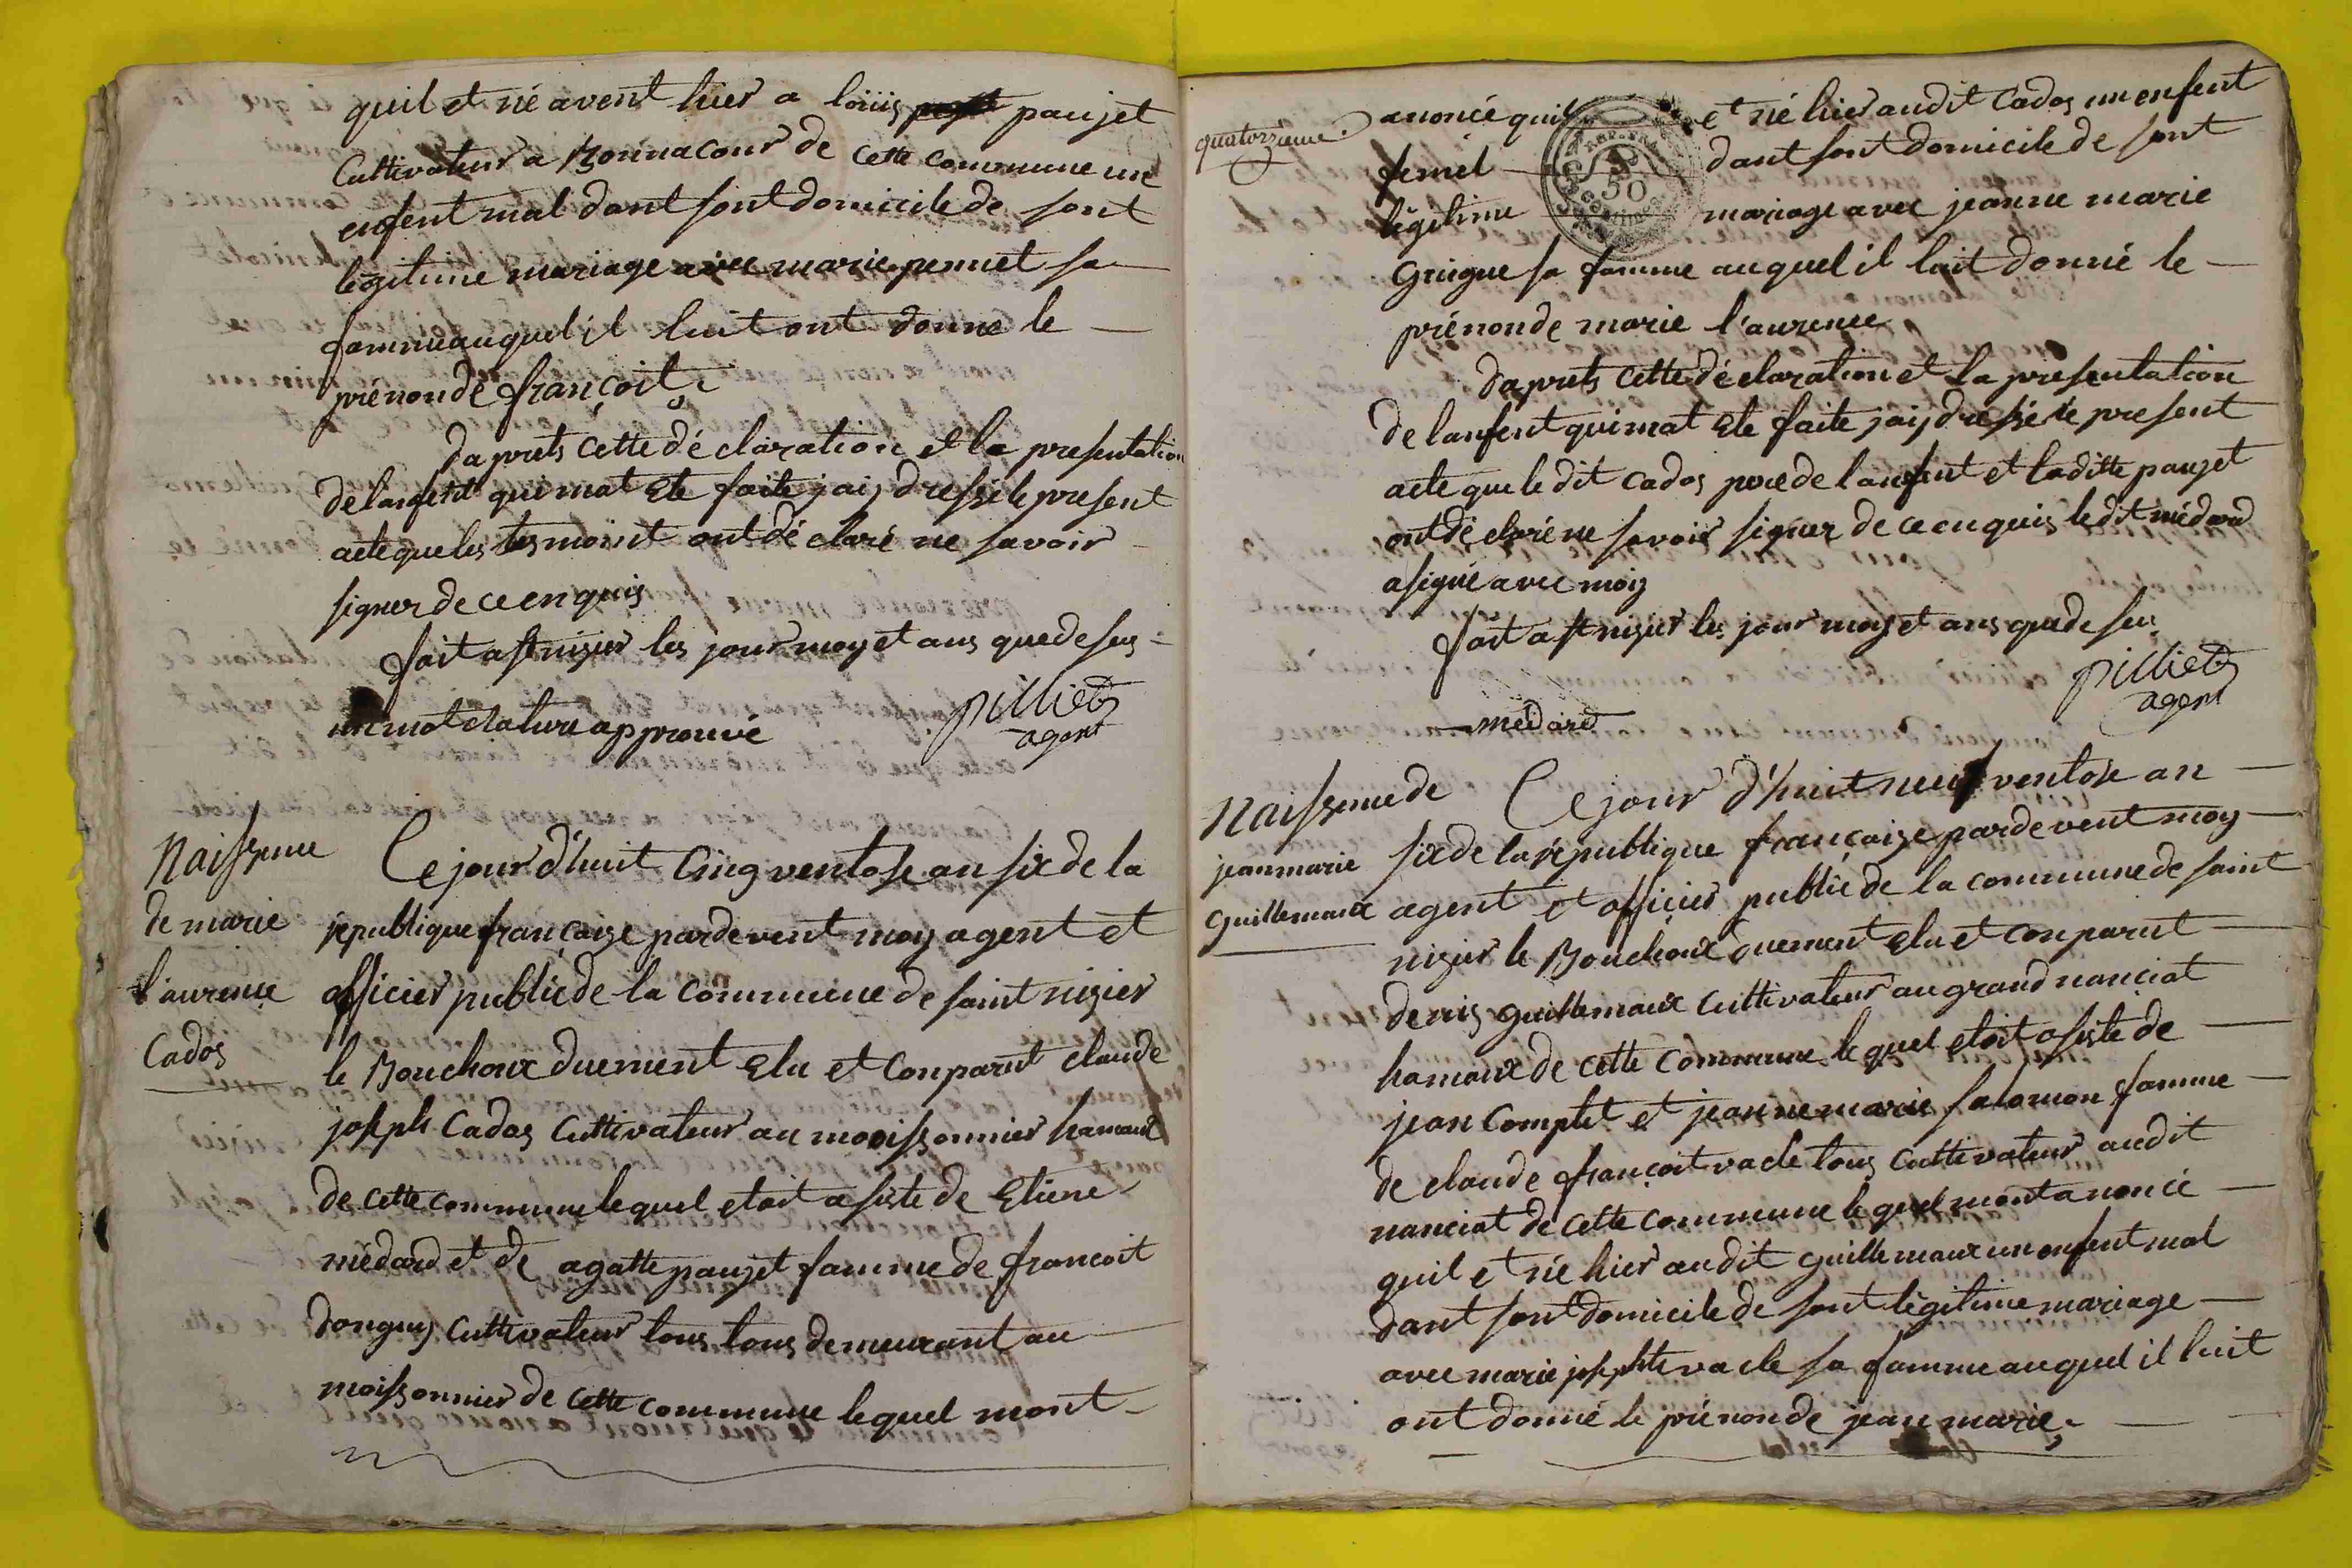 quil et né avent hier a loüis paujet
Cultivateur a Bonnacour de cette commune une
enfent mal dant sont domicile de sont
légitime mariage avec marie pennet sa
famme auquel il luit ont donne le
prénon de françoit
daprets cette déclaration et la presentation
de lanfent qui mat Ete faite jaij dressé le present
acte que les tesmoint ont dé claré ne savoir
signer de ce enquis
fait a st nizier les jour moy et ans que desus
un mot rature approuvé
pilliet
agent
Naissence
de marie
l'aurence
Cados
Ce jour d'huit Cinq ventose an six de la
république françaize pardevent moy agent et
officier public de la commune de saint nizier
le Bouchoux duement Elu et Conparut claude
joseph Cados Cultivateur au moissonnier hamaux
de cette commune lequel etoit asiste de Etiene
médard et de agatte paujet famme de francoit
donguy Cultivateur tous tous demeurant au
moissonnier de cette commune lequel mont
quatorzieme
anoncé quil et né hier audit Cados un enfent
femel dant sont domicile de sont
légitime mariage avec jeanne marie
Guigue sa famme auquel il luit donné le
prénon de marie l'aurence
daprets cette déclaration et la presentation
de lanfent qui mat Ete faite jaij dressé le present
acte que le dit Cados pere de lanfent et laditte paujet
ont dé claré ne savoir signer de ce enquis ledit médard
a signé avec moy
fait a st nizier les jour moy et ans que desu
pilliet
agent
médard
50
Naissence de
jean marie
Guillemaux
Ce jour d'huit neuf ventose an
six de la république françaize pardevent moy
agent et officier public de la commune de saint
nizier le Bouchoux duement Elu et conparut
denis guillemaux Cultivateur au grand nanciat
hamaux de cette commune lequel etoit asiste de
jean Comptet et jeanne marie salomon famme
de claude françoit vacle tous Cultivateur audit
nanciat de cette commune lequel mont anoncé
quil et né hier audit guillemaux un enfent mal
dant sont domicile de sont légitime mariage
avec marie josephte vacle sa famme auquel il luit
ont donné le prénon de jean marie